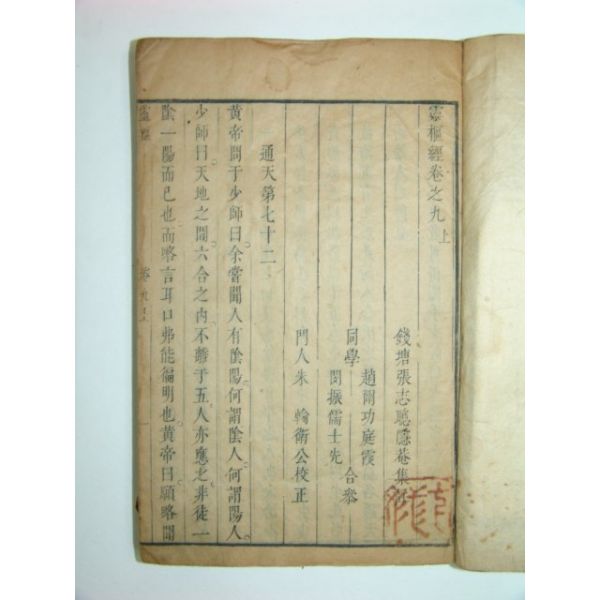 靈樞經卷之九上
錢塘張志聰隱菴集
趙爾功庭霞
同學　合參
閔振儒士先
門人朱　輪衛公校正
通天第七十二
黃帝問于少師曰余嘗聞人有陰陽何謂陰人何謂陽人
少師曰天地之間六合之內不離于五人亦應之非徒一
陰一陽而已也而略言耳口弗能徧明也黃帝曰願略聞
靈樞　卷九上